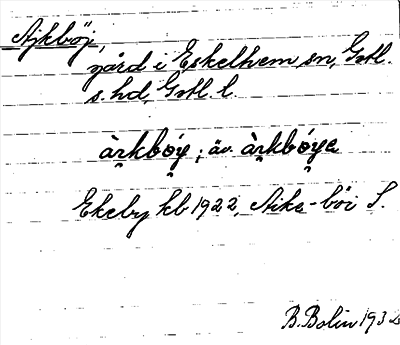 Ajkböj,
gård i Eskelhem sn, Gotl.
s. hd, Gotl. l.
àrkbóy; äv. àrkbóye
Ekeby kb 1922, Aike-böi S.
B. Bolin 1932